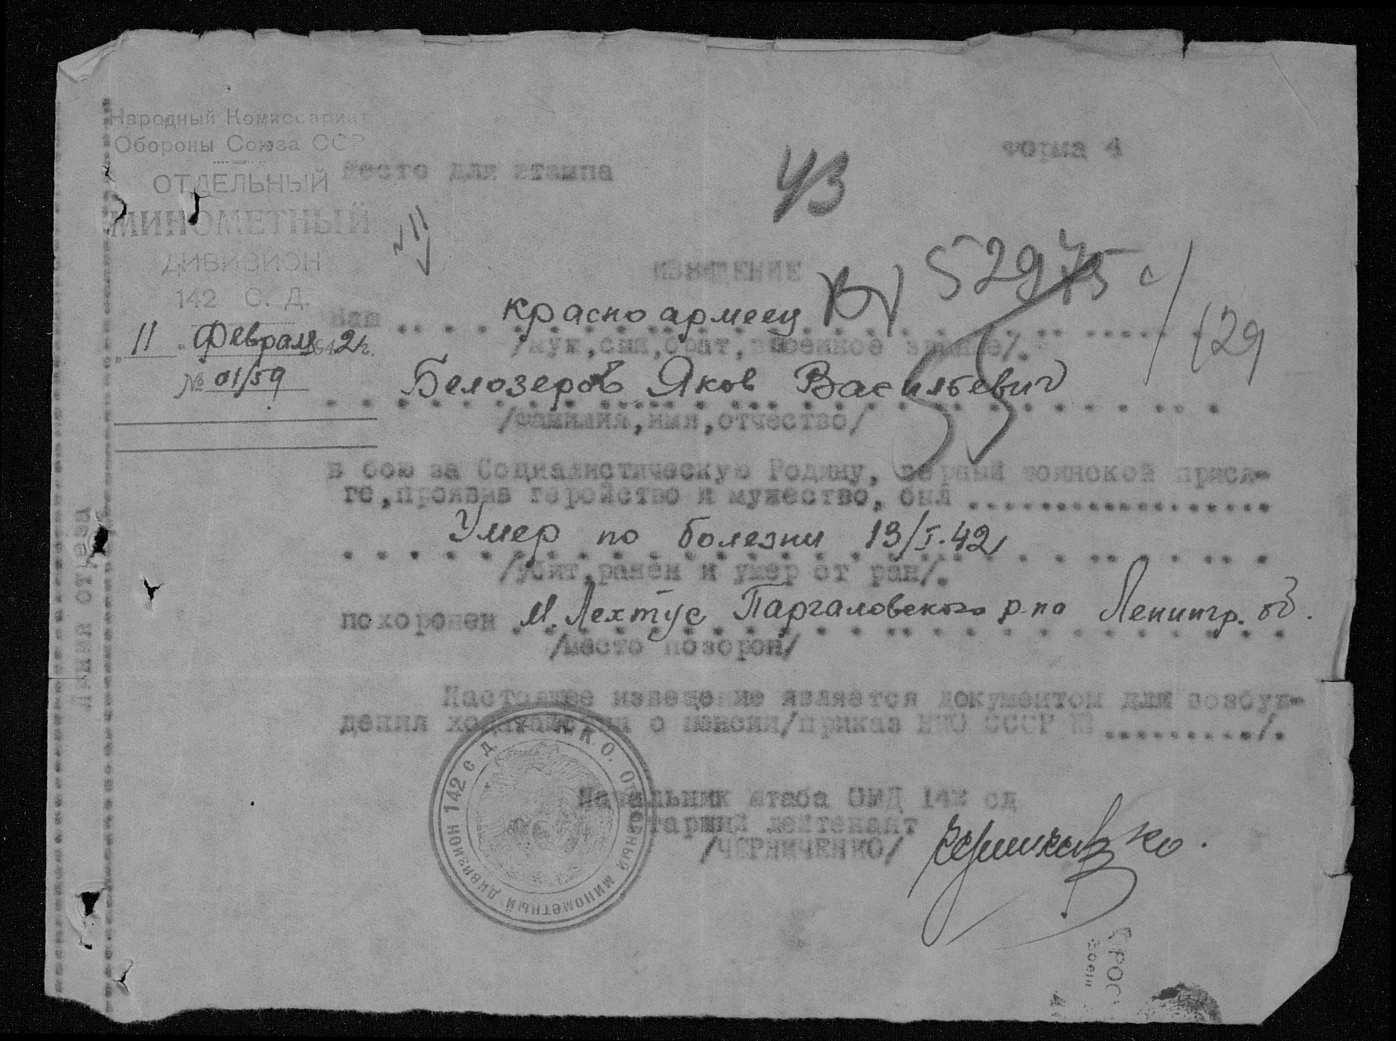 Народный Комиссариат
Обороны Союза ССР
ОТДЕЛЬНЫЙ
МИНОМЕТНЫЙ
ДИВИЗИОН
142 С. Д.
"11" Февраля 1942г.
№ 01/59
Место для штампа
43
Форма 4
ИЗВЕЩЕНИЕ
52975с
129
Ваш красноармеец
/муж,сын,брат,военное звание/.
Белозеров Яков Васильевич
/фамилия,имя,отчество/
в бою за Социалистическую Родину, верный воинской прися-
ге,проявив геройство и мужество, был
Умер по болезни 13/I-42
/убит,ранен и умер от ран/.
похоронен м. Лехтус Паргаловского р-на Ленингр. об.
/место похорон/
Настоящее извещение является документом для возбуж-
дения ходатайства о пенсии/приказ НКО СССР №........./.
Начальник штаба ОМД 142 сд
старший лейтенант
/ЧЕРНИЧЕНКО/
Н.К.О. Отдельный минометный дивизион 142 с д
Линия отреза